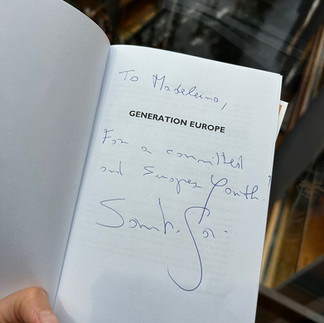 To Madeleine,
GENERATION EUROPE
For a committed
and European Youth